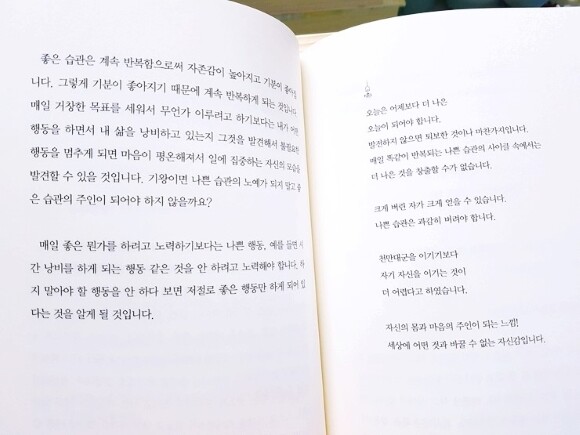 좋은 습관은 계속 반복함으로써 자존감이 높아지고 기분이 좋아집
니다. 그렇게 기분이 좋아지기 때문에 계속 반복하게 되는 것입니다.
매일 거창한 목표를 세워서 무언가 이루려고 하기보다는 내가 어떤
행동을 하면서 내 삶을 낭비하고 있는지 그것을 발견해서 불필요한
행동을 멈추게 되면 마음이 평온해져서 일에 집중하는 자신의 모습을
발견할 수 있을 것입니다. 기왕이면 나쁜 습관의 노예가 되지 말고 좋
은 습관의 주인이 되어야 하지 않을까요?
매일 좋은 뭔가를 하려고 노력하기보다는 나쁜 행동, 예를 들면 시
간 낭비를 하게 되는 행동 같은 것을 안 하려고 노력해야 합니다. 하
지 말아야 할 행동을 안 하다 보면 저절로 좋은 행동만 하게 되어 있
다는 것을 알게 될 것입니다.
오늘은 어제보다 더 나은
오늘이 되어야 합니다.
발전하지 않으면 퇴보한 것이나 마찬가지입니다.
매일 똑같이 반복되는 나쁜 습관의 사이클 속에서는
더 나은 것을 창출할 수가 없습니다.
크게 버린 자가 크게 얻을 수 있습니다.
나쁜 습관은 과감히 버려야 합니다.
천만대군을 이기기보다
자기 자신을 이기는 것이
더 어렵다고 하였습니다.
자신의 몸과 마음의 주인이 되는 느낌!
세상에 어떤 것과 바꿀 수 없는 자신감입니다.